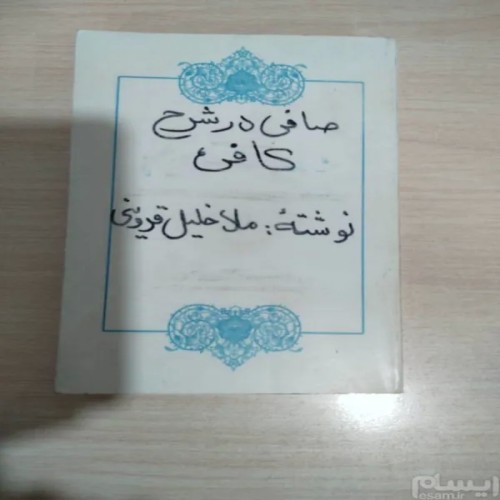 صافی در شرح
کافی
نوشتهٔ: ملا خلیل قزوینی
ایسام
esam.ir